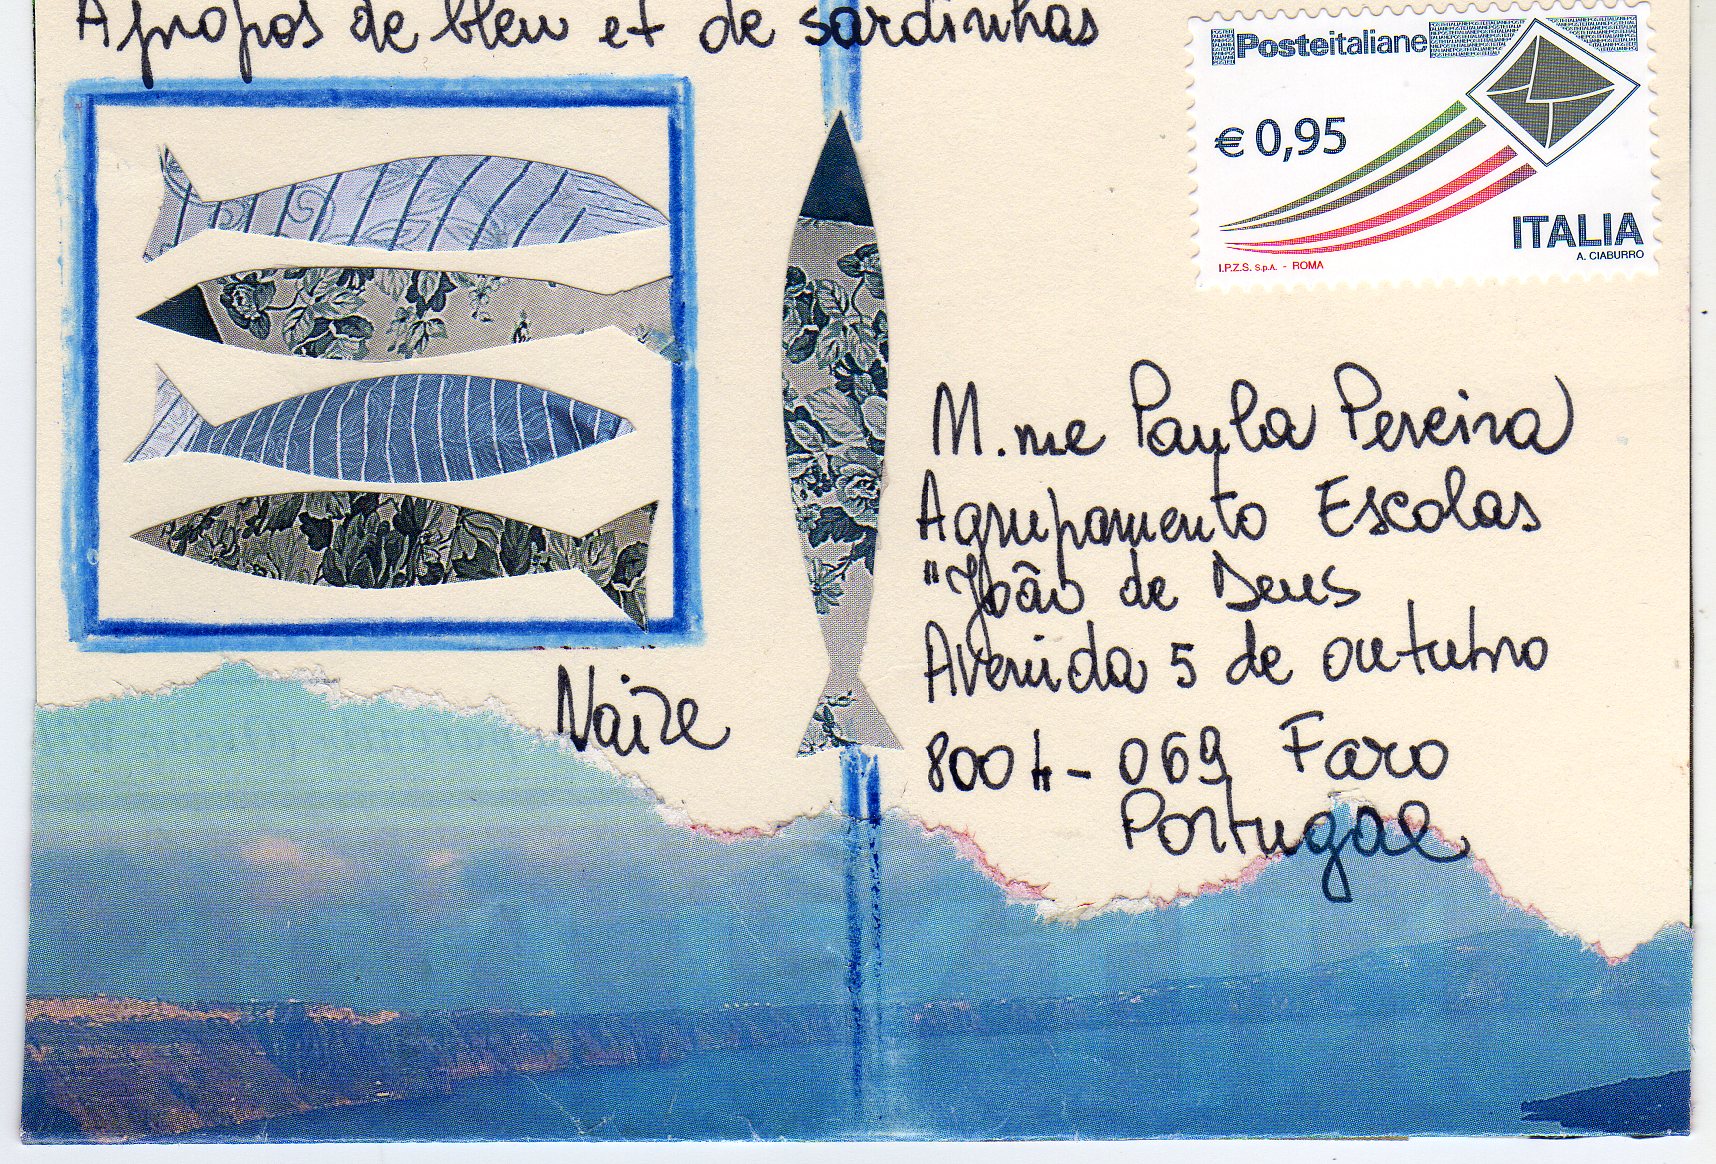 Apropos de bleu et de sardinhas
Posteitaliane
€ 0,95
ITALIA
A. CIABURRO
I.P.Z.S. S.p.A. - ROMA
M.me Paula Pereira
Agrupamento Escolas
"João de Deus
Avenida 5 de outubro
8004-069 Faro
Portugal